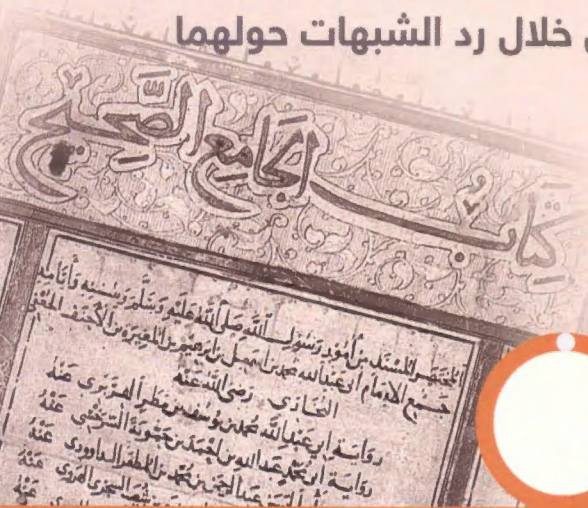 خلال رد الشبهات حولهما
كتاب الجامع الصحيح
المختصر المسند من أمور رسول الله صلى الله عليه وسلم وسننه وأيامه
جمع الإمام أبي عبد الله محمد بن إسمعيل بن إبراهيم بن المغيرة بن الأحنف
البخاري رضي الله عنه
رواية أبي عبد الله محمد بن يوسف بن مطر الفربري عنه
رواية أبي محمد عبد الله بن أحمد بن حمويه السرخسي عنه
عبد الرحمن بن محمد بن المظفر الداوودي عنه
شعيب السجزي الهروي عنه